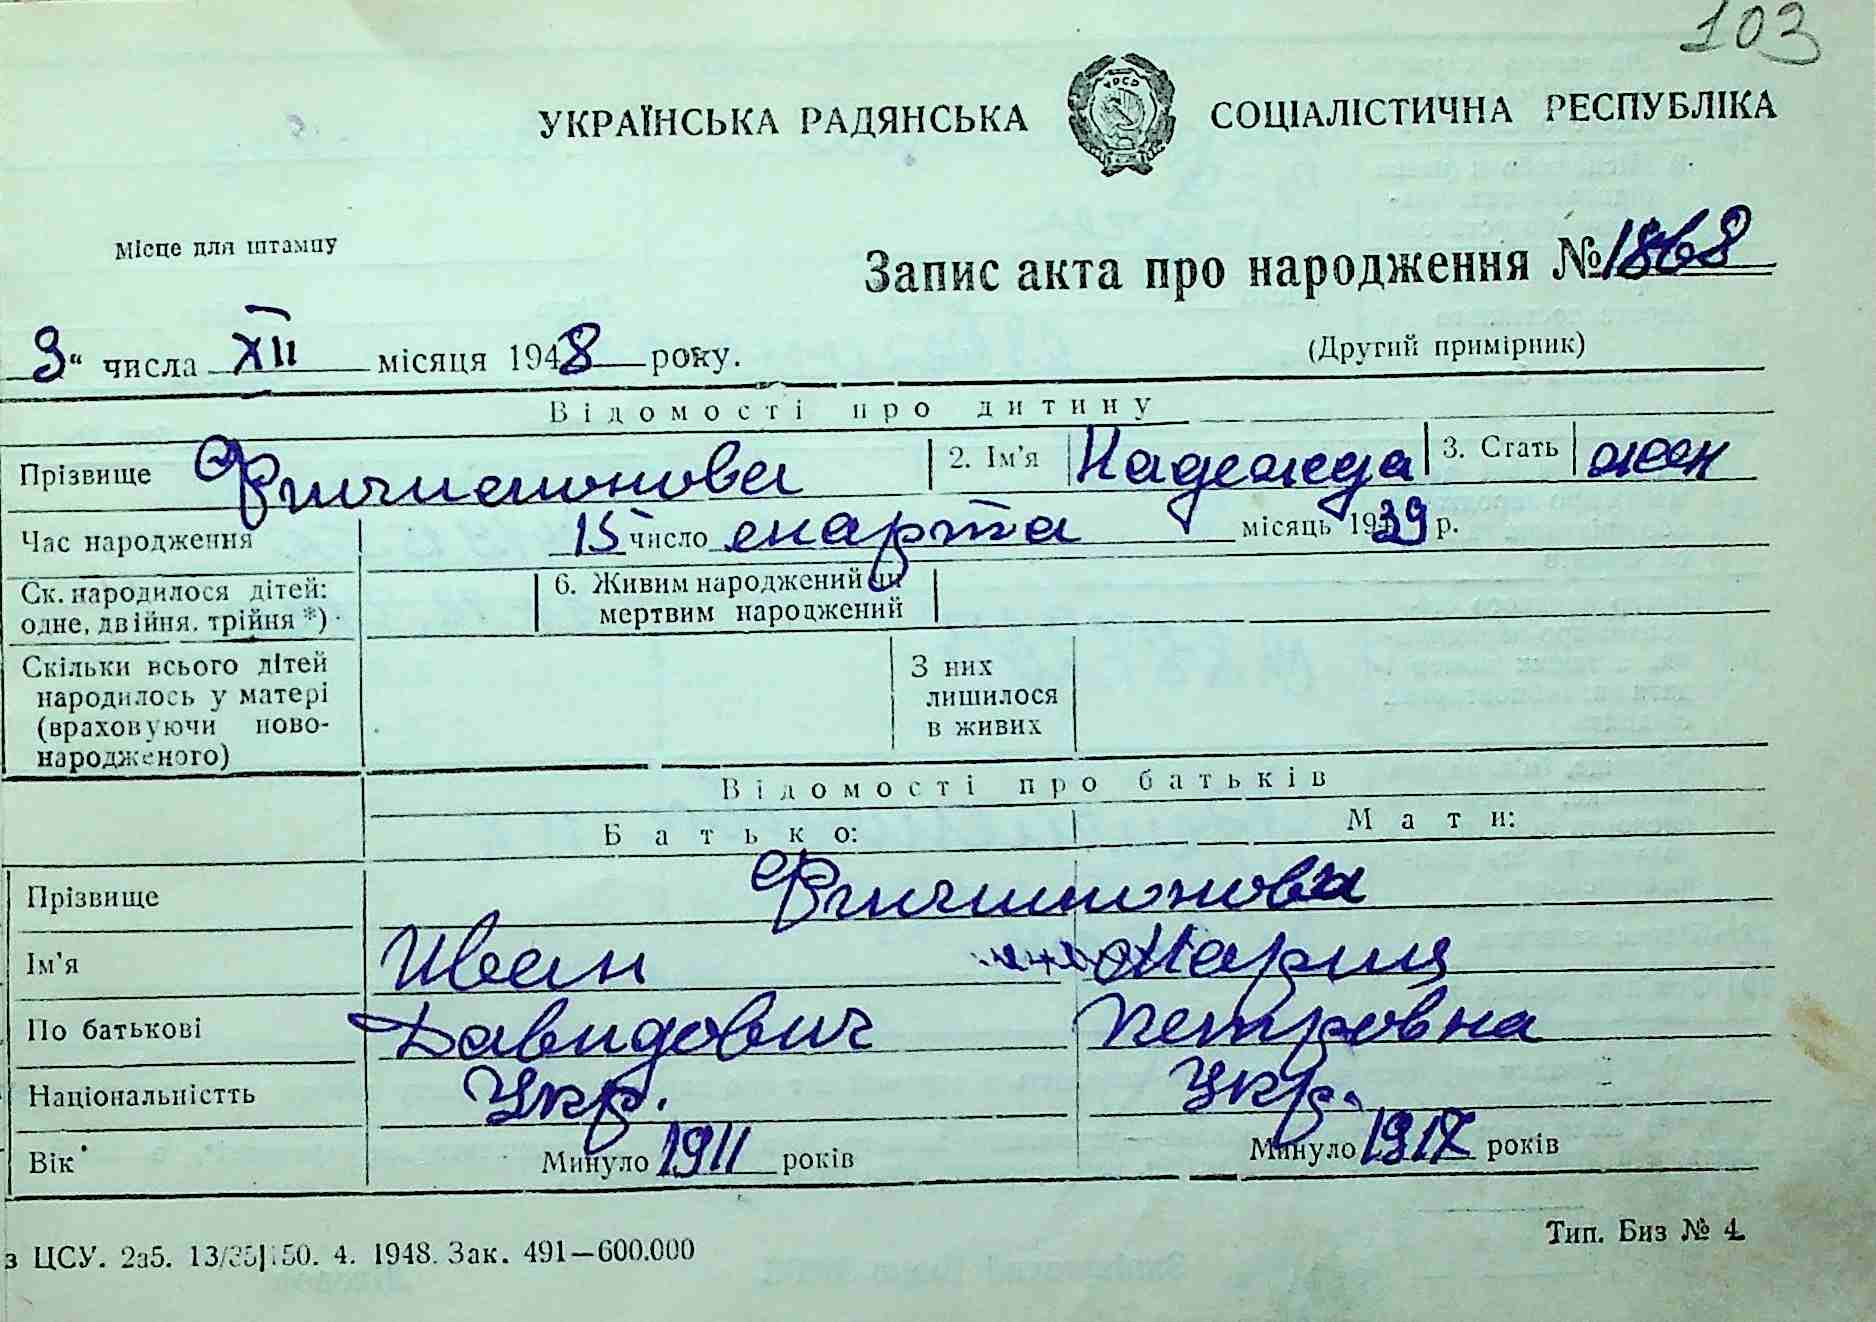 103
УКРАЇНСЬКА РАДЯНСЬКА СОЦІАЛІСТИЧНА РЕСПУБЛІКА
УРСР
Місце для штампу
Запис акта про народження № 1868
(Другий примірник)
9“ числа XII місяця 1948 року.
Відомості про дитину
Прізвище 2. Ім'я Надежда 3. Стать жен
Час народження 15 число марта місяць 1939 р.
Ск. народилося дітей: одне, двійня, трійня *)
6. Живим народжений чи мертвим народжений
Скільки всього дітей народилось у матері (враховуючи новонародженого)
З них лишилося в живих
Відомості про батьків
Батько: Мати:
Прізвище
Ім'я Иван Мария
По батькові Давидович Петровна
Національністть Укр. Укр.
Вік Минуло 1911 років Минуло 1917 років
з ЦСУ. 2а5. 13/35|150. 4. 1948. Зак. 491—600.000
Тип. Биз № 4.